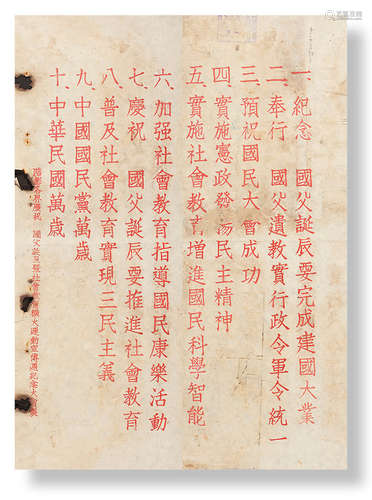 一、紀念　國父誕辰要完成建國大業
二、奉行　國父遺教實行政令軍令統一
三、預祝國民大會成功
四、實施憲政發揚民主精神
五、實施社會教育增進國民科學智能
六、加强社會教育指導國民康樂活動
七、慶祝　國父誕辰要推進社會教育
八、普及社會教育實現三民主義
九、中國國民黨萬歲
十、中華民國萬歲